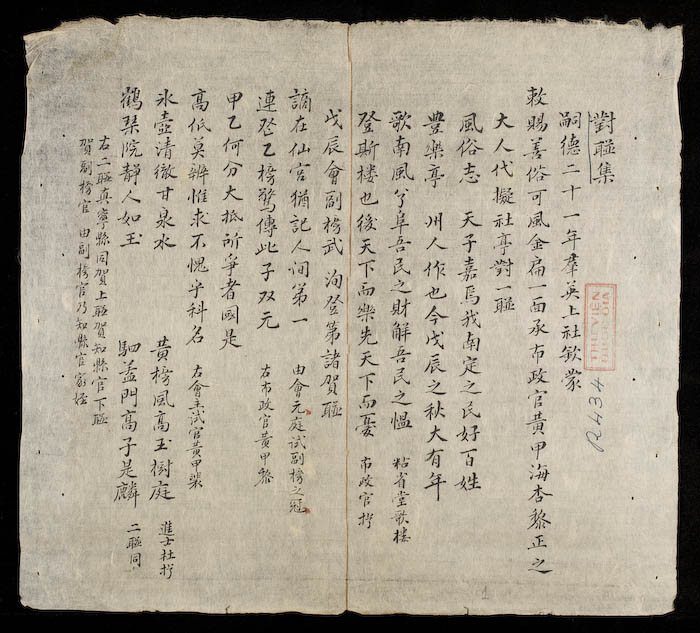 對聯集
嗣德二十一年羣英上社欽蒙
敕賜善俗可風金扁一面承布政官黄甲海杏黎正之
大人代擬社亭對一聯
風俗志 天子嘉焉我南定之民好百姓
豊樂亭 州人作也今戊辰之秋大有年
歌南風兮阜吾民之財解吾民之愠 粘省堂歌樓
登斯樓也後天下而樂先天下而憂 布政官抄
戊辰會副榜武 洵登第諸賀聯
謫在仙宮猶記人间第一 由會元庭試副榜之冠
連登乙榜驚傳此子双元 右布政官黄甲黎
甲乙何分大抵所爭者國是
高低莫辨惟求不愧乎科名 右會主試官黄甲裴
氷壺清徹甘泉水 黄榜風高玉樹庭 進士杜抄
鶴琹院静人如玉 駟盖門高子是麟 二聯同
右二聯真寧縣同賀上聯賀知縣官下聯
賀副榜官 由副榜官乃知縣官家姪
THƯ VIỆN
QUỐC GIA
R434
1